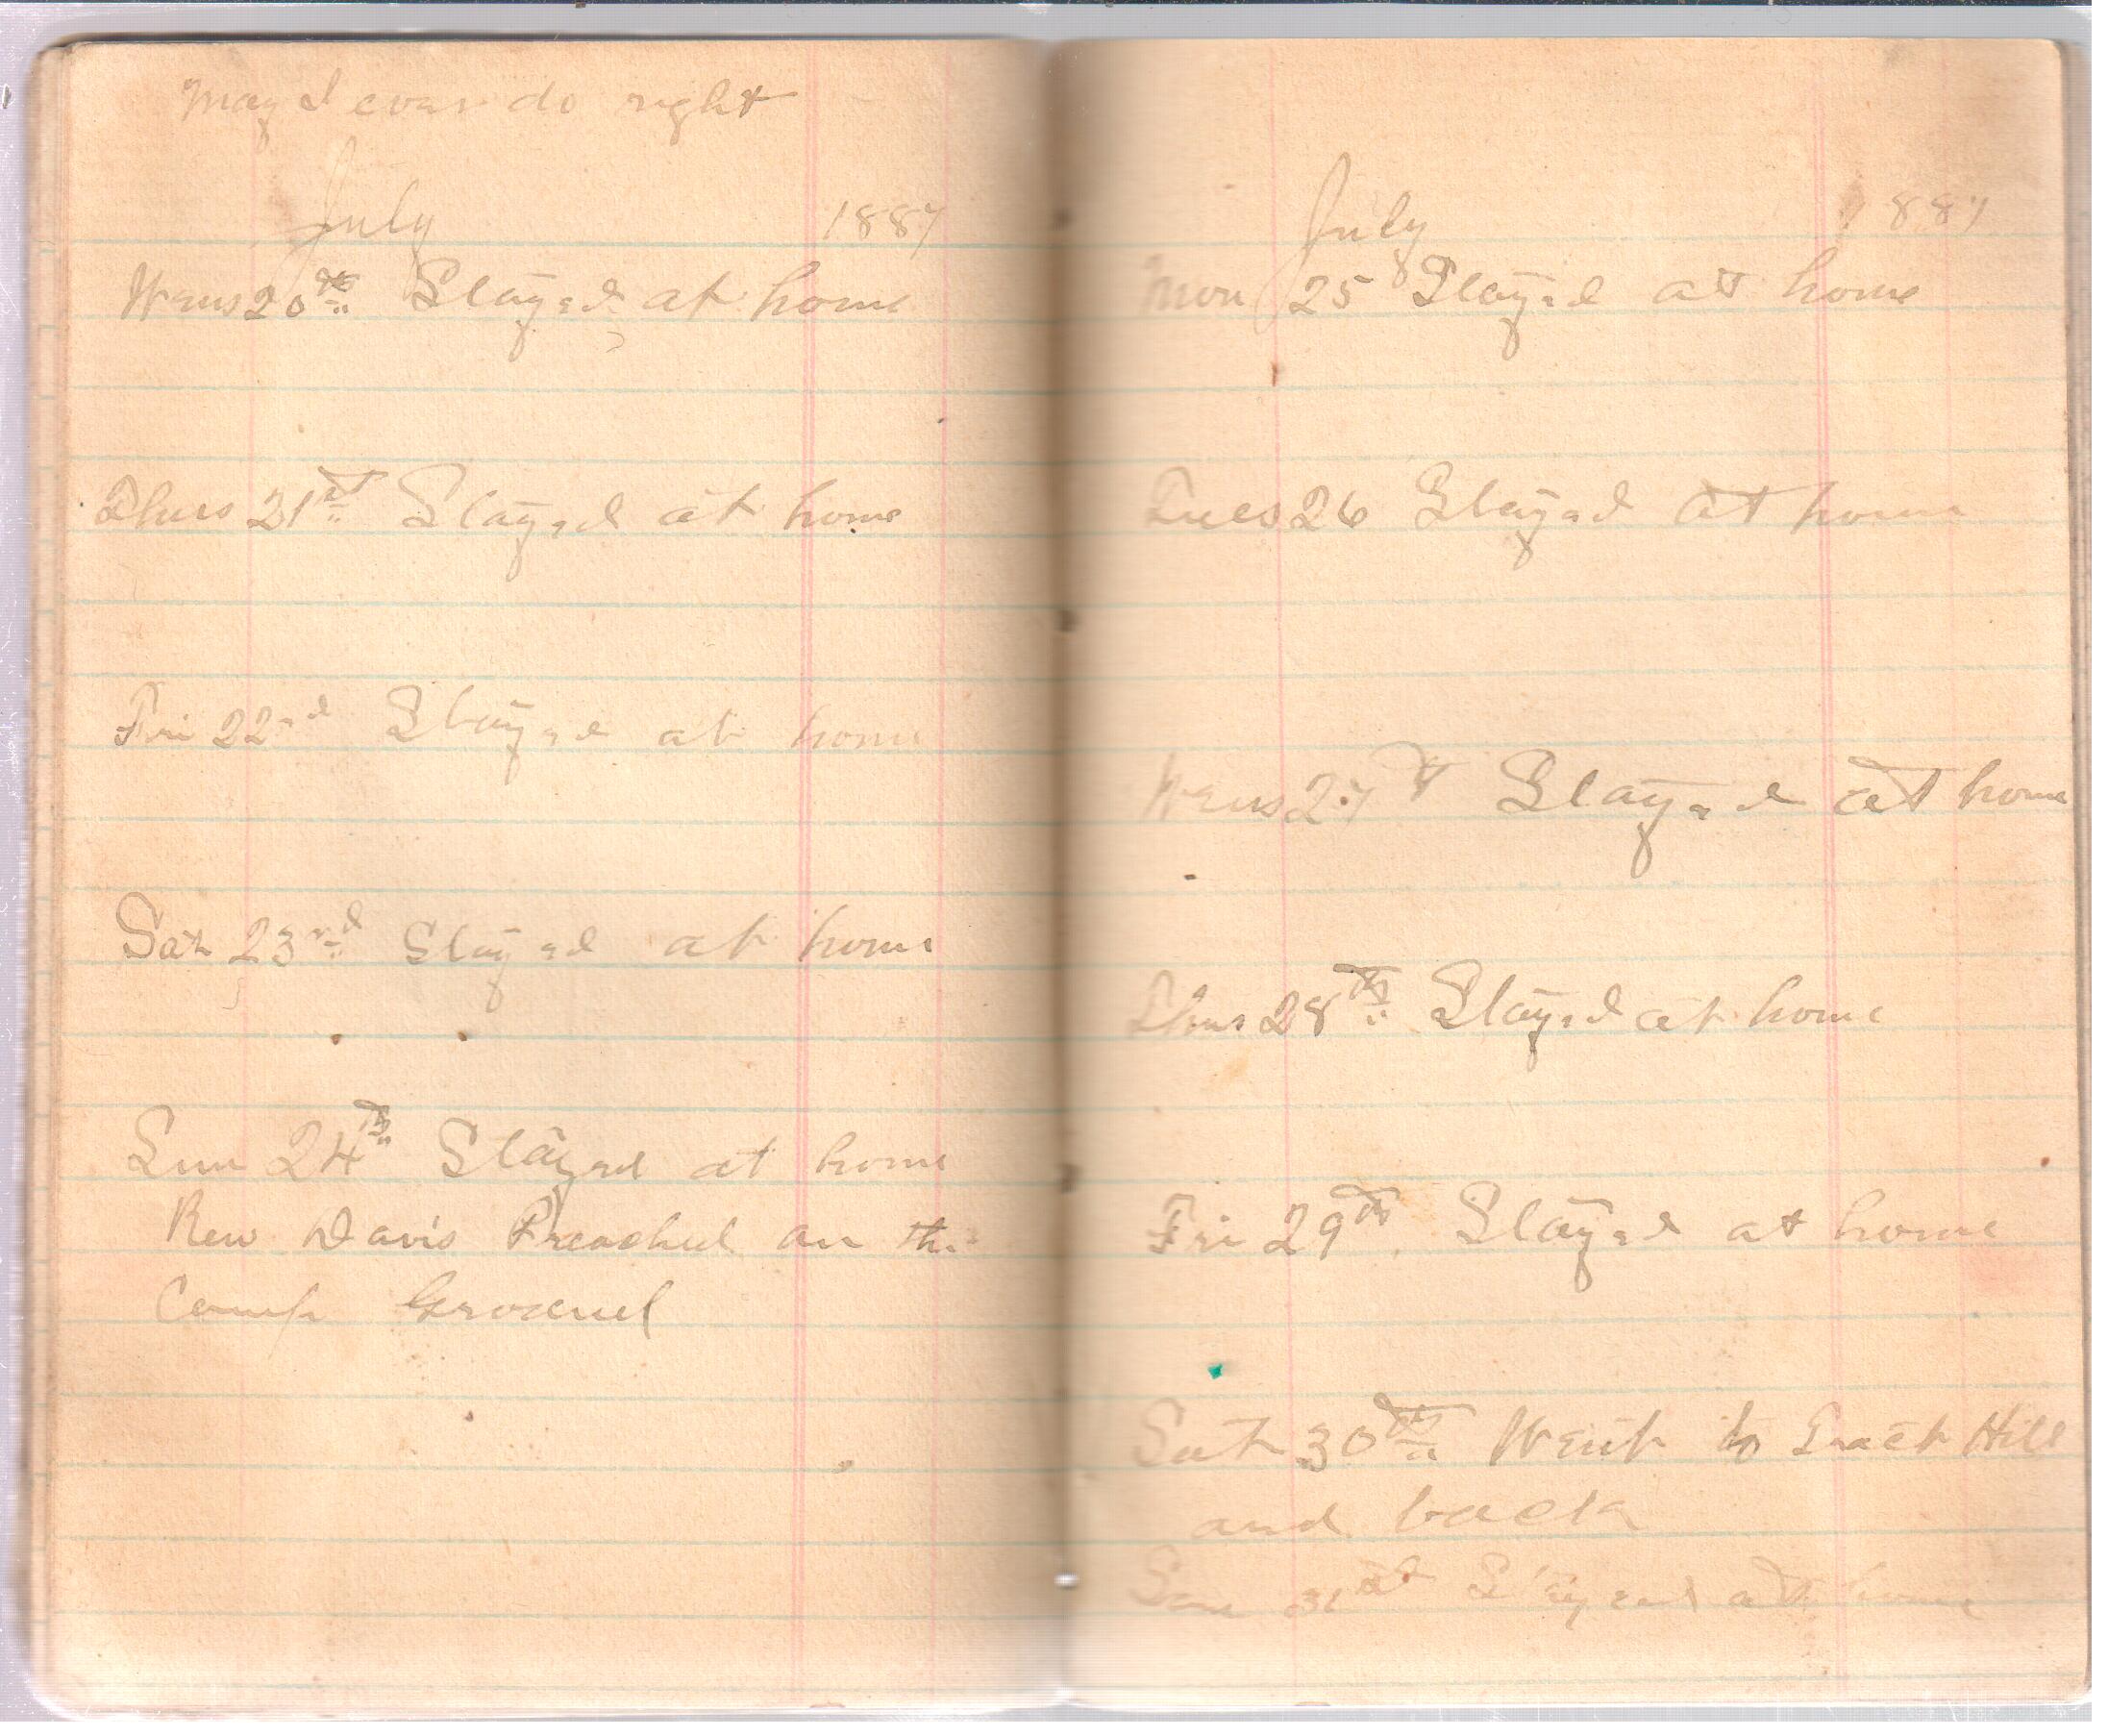 May I ever do right
July 1887
Wens 20th Stayed at home
Thurs 21st Stayed at home
Fri 22nd Stayed at home
Sat 23rd Stayed at home
Sun 24th Stayed at home
Rev Davis Preached on the
Camp Ground
July 1887
Mon 25 Stayed at home
Tues 26 Stayed at home
Wens 27th Stayed at home
Thurs 28th Stayed at home
Fri 29th Stayed at home
Sat 30th Went to Hill
and back
Sun 31st Stayed at home